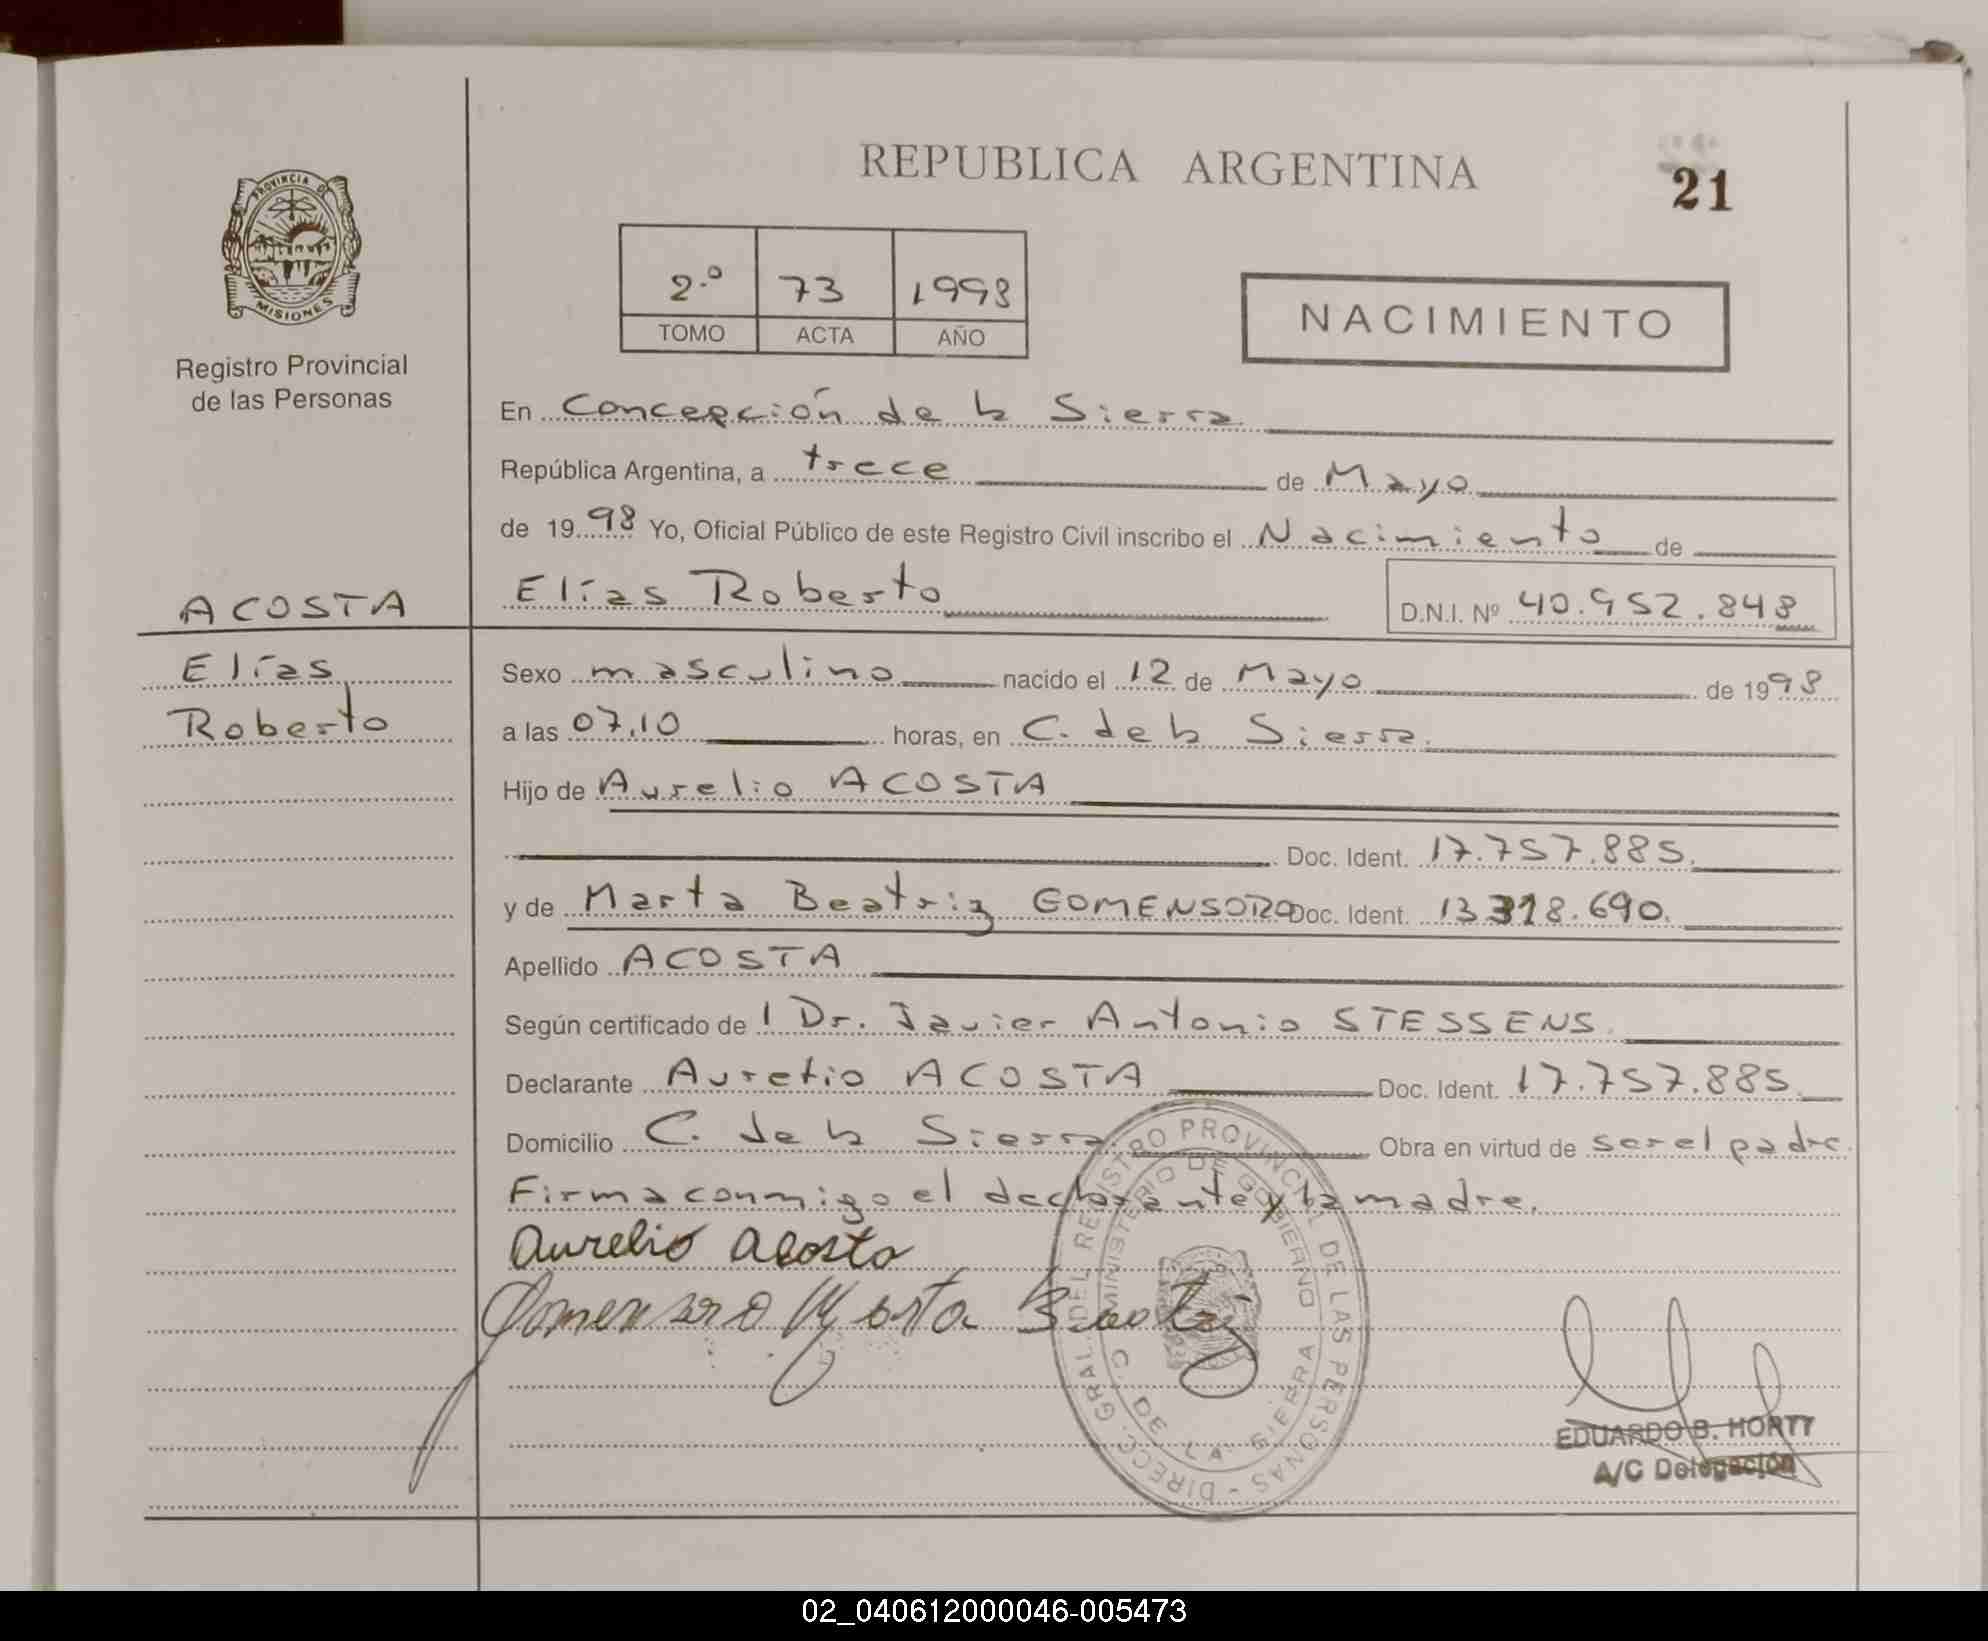 REPUBLICA ARGENTINA
21
PROVINCIA DE
MISIONES
Registro Provincial
de las Personas
2.º 73 1998
TOMO ACTA AÑO
NACIMIENTO
En Concepción de la Sierra
República Argentina, a trece de Mayo
de 1998 Yo, Oficial Público de este Registro Civil inscribo el Nacimiento de
ACOSTA
Elías Roberto D.N.I. Nº 40.952.848
Elías
Roberto
Sexo masculino nacido el 12 de Mayo de 1998
a las 07.10 horas, en C. de la Sierra.
Hijo de Aurelio ACOSTA
Doc. Ident. 17.757.885.
y de Marta Beatriz GOMENSORO Doc. Ident. 13.318.690.
Apellido ACOSTA
Según certificado de l Dr. Javier Antonio STESSENS.
Declarante Aurelio ACOSTA Doc. Ident. 17.757.885.
Domicilio C. de la Sierra. Obra en virtud de ser el padre.
Firma conmigo el declarante y la madre.
Aurelio Acosta
Gomensoro Marta Beatriz
DIRECC. GRAL. DEL REGISTRO PROVINCIAL DE LAS PERSONAS -
MINISTERIO DE GOBIERNO
C. DE LA SIERRA
EDUARDO B. HORTT
A/C Delegación
02_040612000046-005473